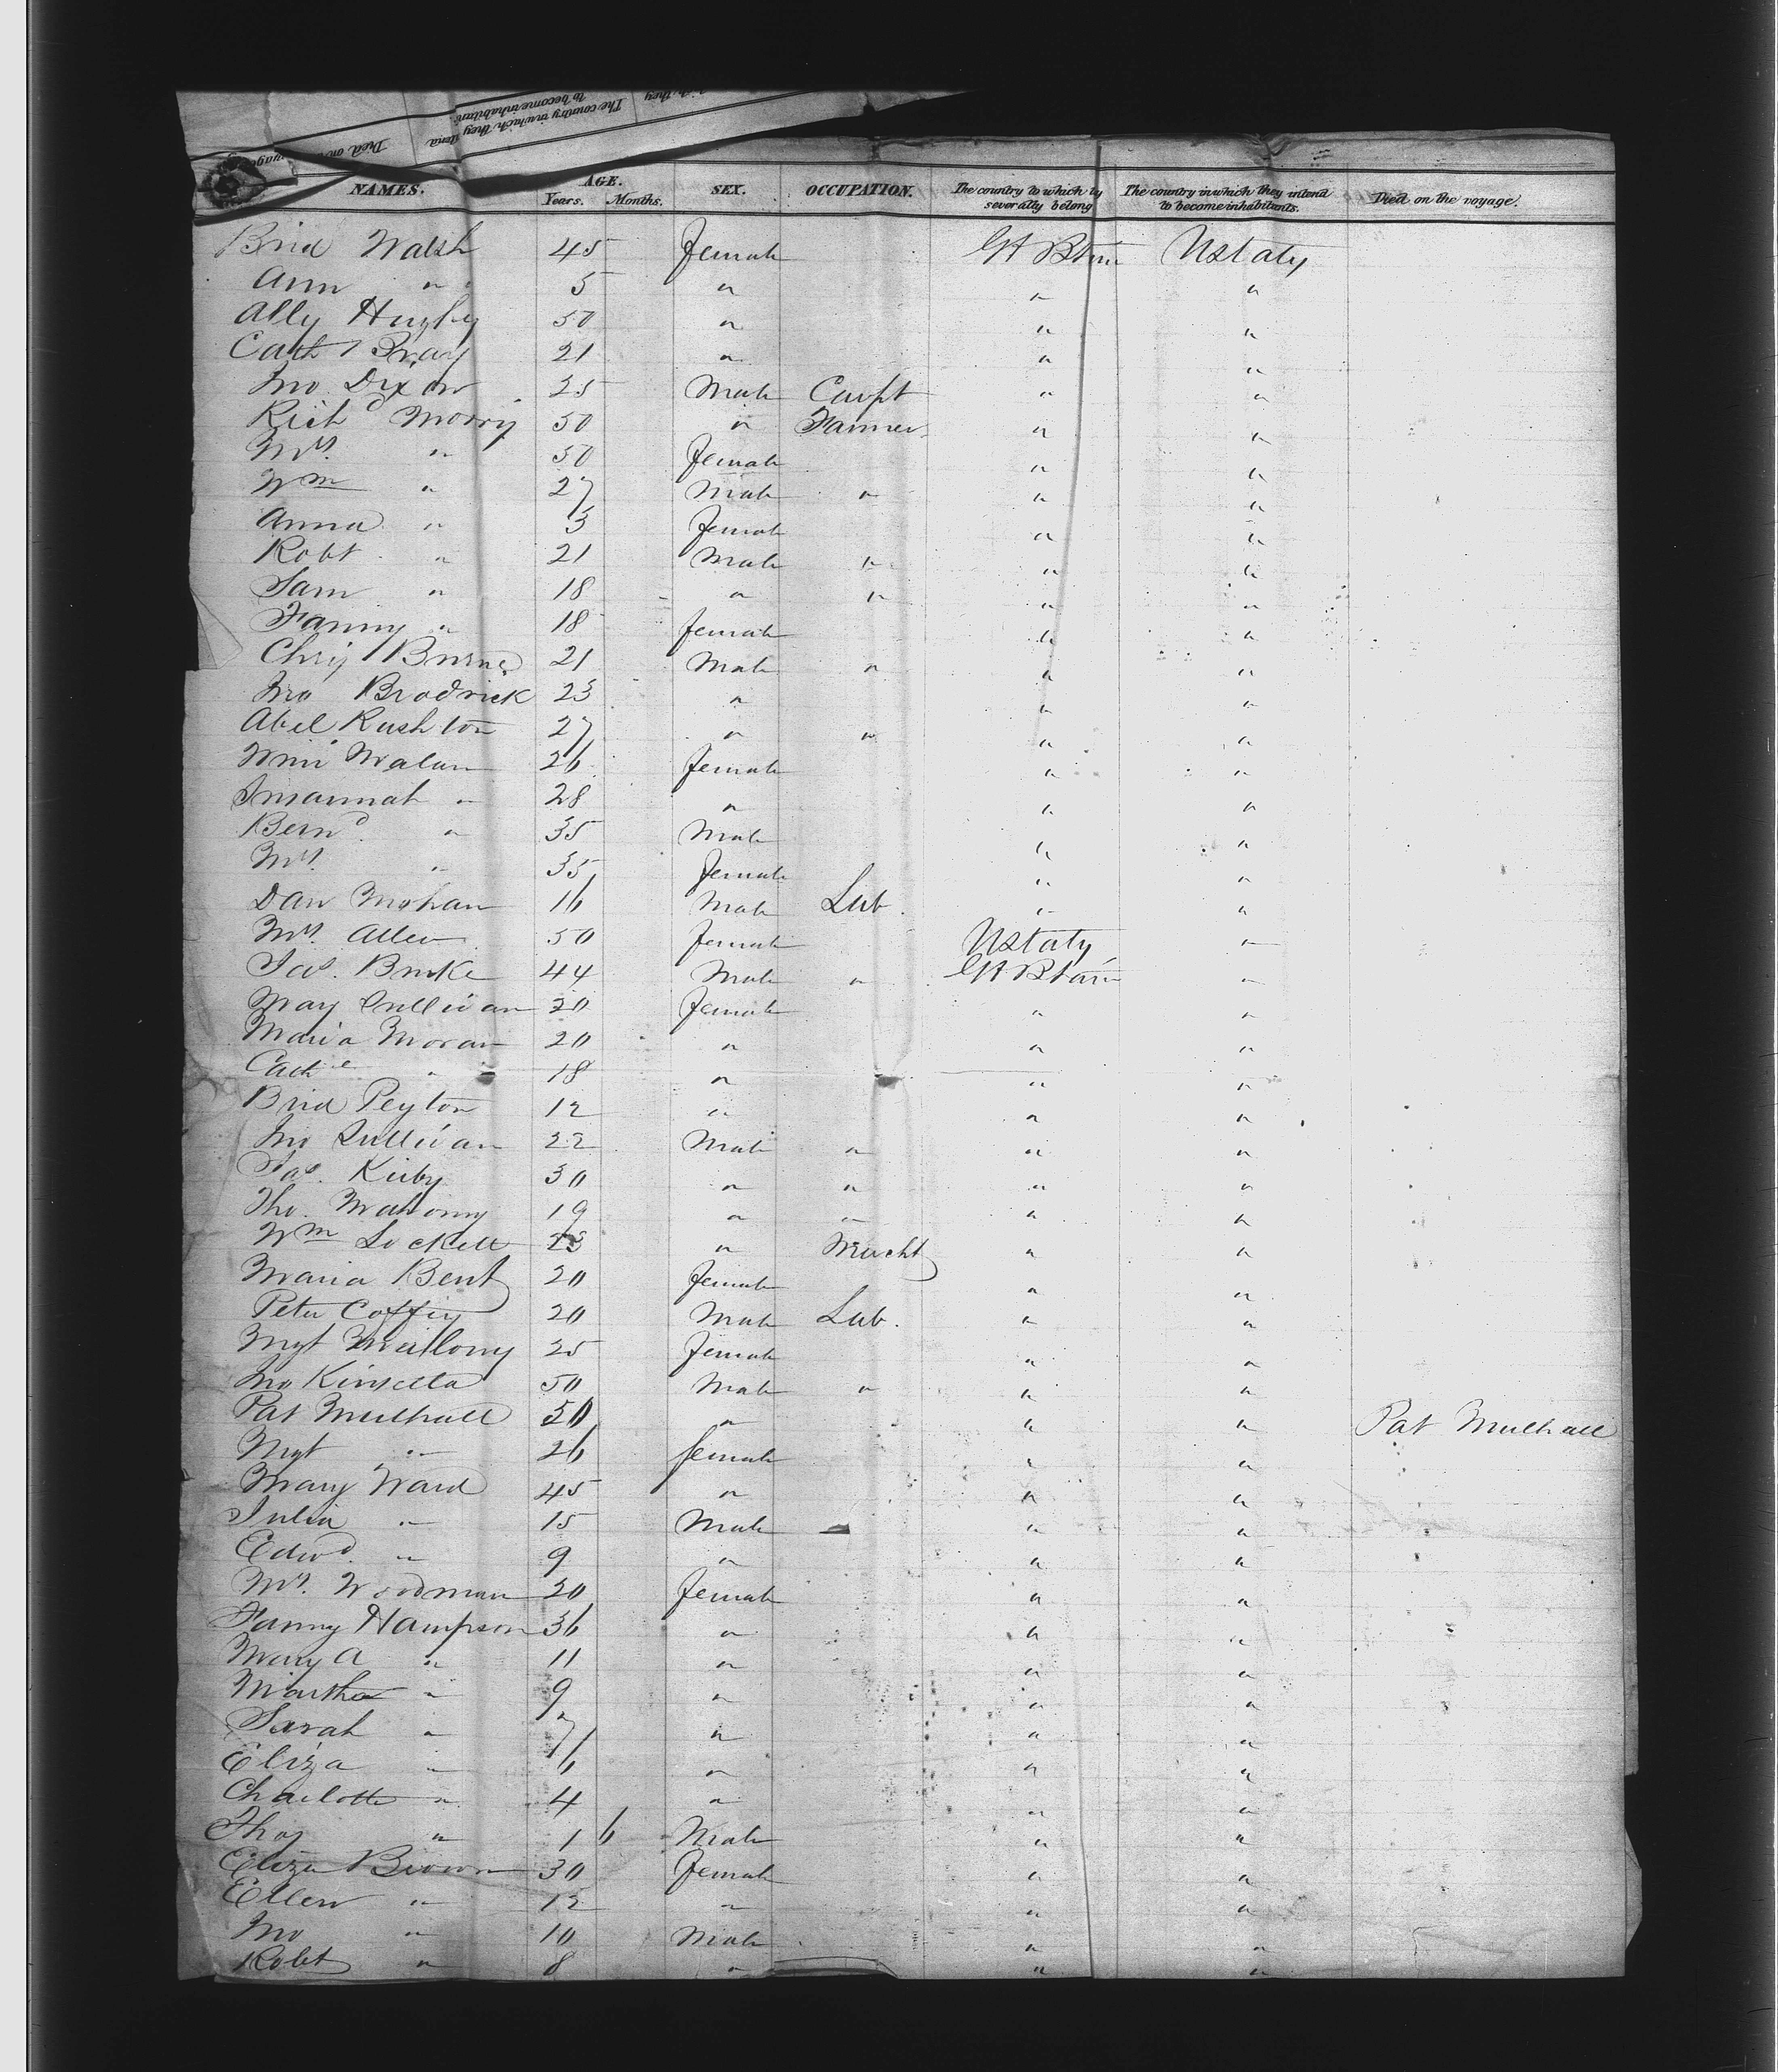 The country in which they
to become inhabitants
Died on
NAMES. AGE. Years. Months. SEX. OCCUPATION. The country to which they severally belong The country in which they intend to become inhabitants. Died on the voyage.
Brid Walsh 45 female Gt Btni Ustaty
Ann " 5 " " "
Ally Hughy 50 " " "
Cath Bray 21 " " "
Jno Dixon 25 Male Carpt " "
Richd Morry 50 " Farmer " "
Mrs. " 50 female " "
Wm " 27 Male " " "
Anna " 3 female " "
Robt " 21 Male " " "
Sam " 18 " " " "
Fanny " 18 female " "
Chris Burns 21 Male " " "
Jno Brodrick 23 " " "
Abel Rushton 27 " " " "
Win 26 female " "
Susannah " 28 " " "
Bernd " 35 Male " "
Mrs. " 35 female " "
Dan Mohan 16 Male Lab. " "
Mrs. Allen 50 female Ustaty "
Jas. Burke 44 Male " Gt Btain "
Mary Sullivan 20 female " "
Maria Moran 20 " " "
Cathe " 18 " " "
Brid Peyton 12 " " "
Jno Sullivan 22 Male " " "
Jas. Kirby 30 " " " "
Tho. Mahony 19 " " " "
Wm Lockett 23 " Mercht " "
Maria Bent 20 female " "
Peter Coffey 20 Male Lab. " "
Mgt Mallony 25 female " "
Jno Kinsella 50 Male " " "
Pat Mulhall 50 " " " Pat Mulhall
Mgt " 26 female " "
Mary Ward 45 " " "
Julia " 15 Male " "
Edwd. " 9 " " "
Mrs. Woodman 20 female " "
Fanny Hampson 36 " " "
Mary A " 11 " " "
Martha " 9 " " "
Sarah " 7 " " "
Eliza " 6 " " "
Charlotte " 4 " " "
Thos " 1 6 Male " "
Eliza Brown 30 female " "
Ellen " 12 " " "
Jno " 10 Male " "
Robt " 8 " " "